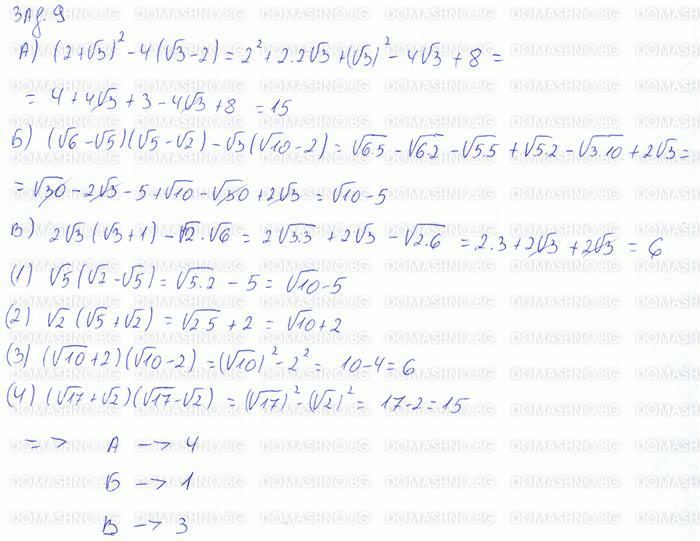 Зад. 9
А) (2+√3)² - 4(√3-2) = 2² + 2.2√3 + (√3)² - 4√3 + 8 =
= 4 + 4√3 + 3 - 4√3 + 8 = 15
Б) (√6-√5)(√5-√2) - √3(√10-2) = √6.5 - √6.2 - √5.5 + √5.2 - √3.10 + 2√3 =
= √30 - 2√3 - 5 + √10 - √30 + 2√3 = √10-5
В) 2√3(√3+1) - √2.√6 = 2√3.3 + 2√3 - √2.6 = 2.3 + 2√3 + 2√3 = 6
(1) √5(√2-√5) = √5.2 - 5 = √10-5
(2) √2(√5+√2) = √2.5 + 2 = √10+2
(3) (√10+2)(√10-2) = (√10)² - 2² = 10-4 = 6
(4) (√17+√2)(√17-√2) = (√17)² - (√2)² = 17-2 = 15
=> А -> 4
Б -> 1
В -> 3
DOMASHNO.BG